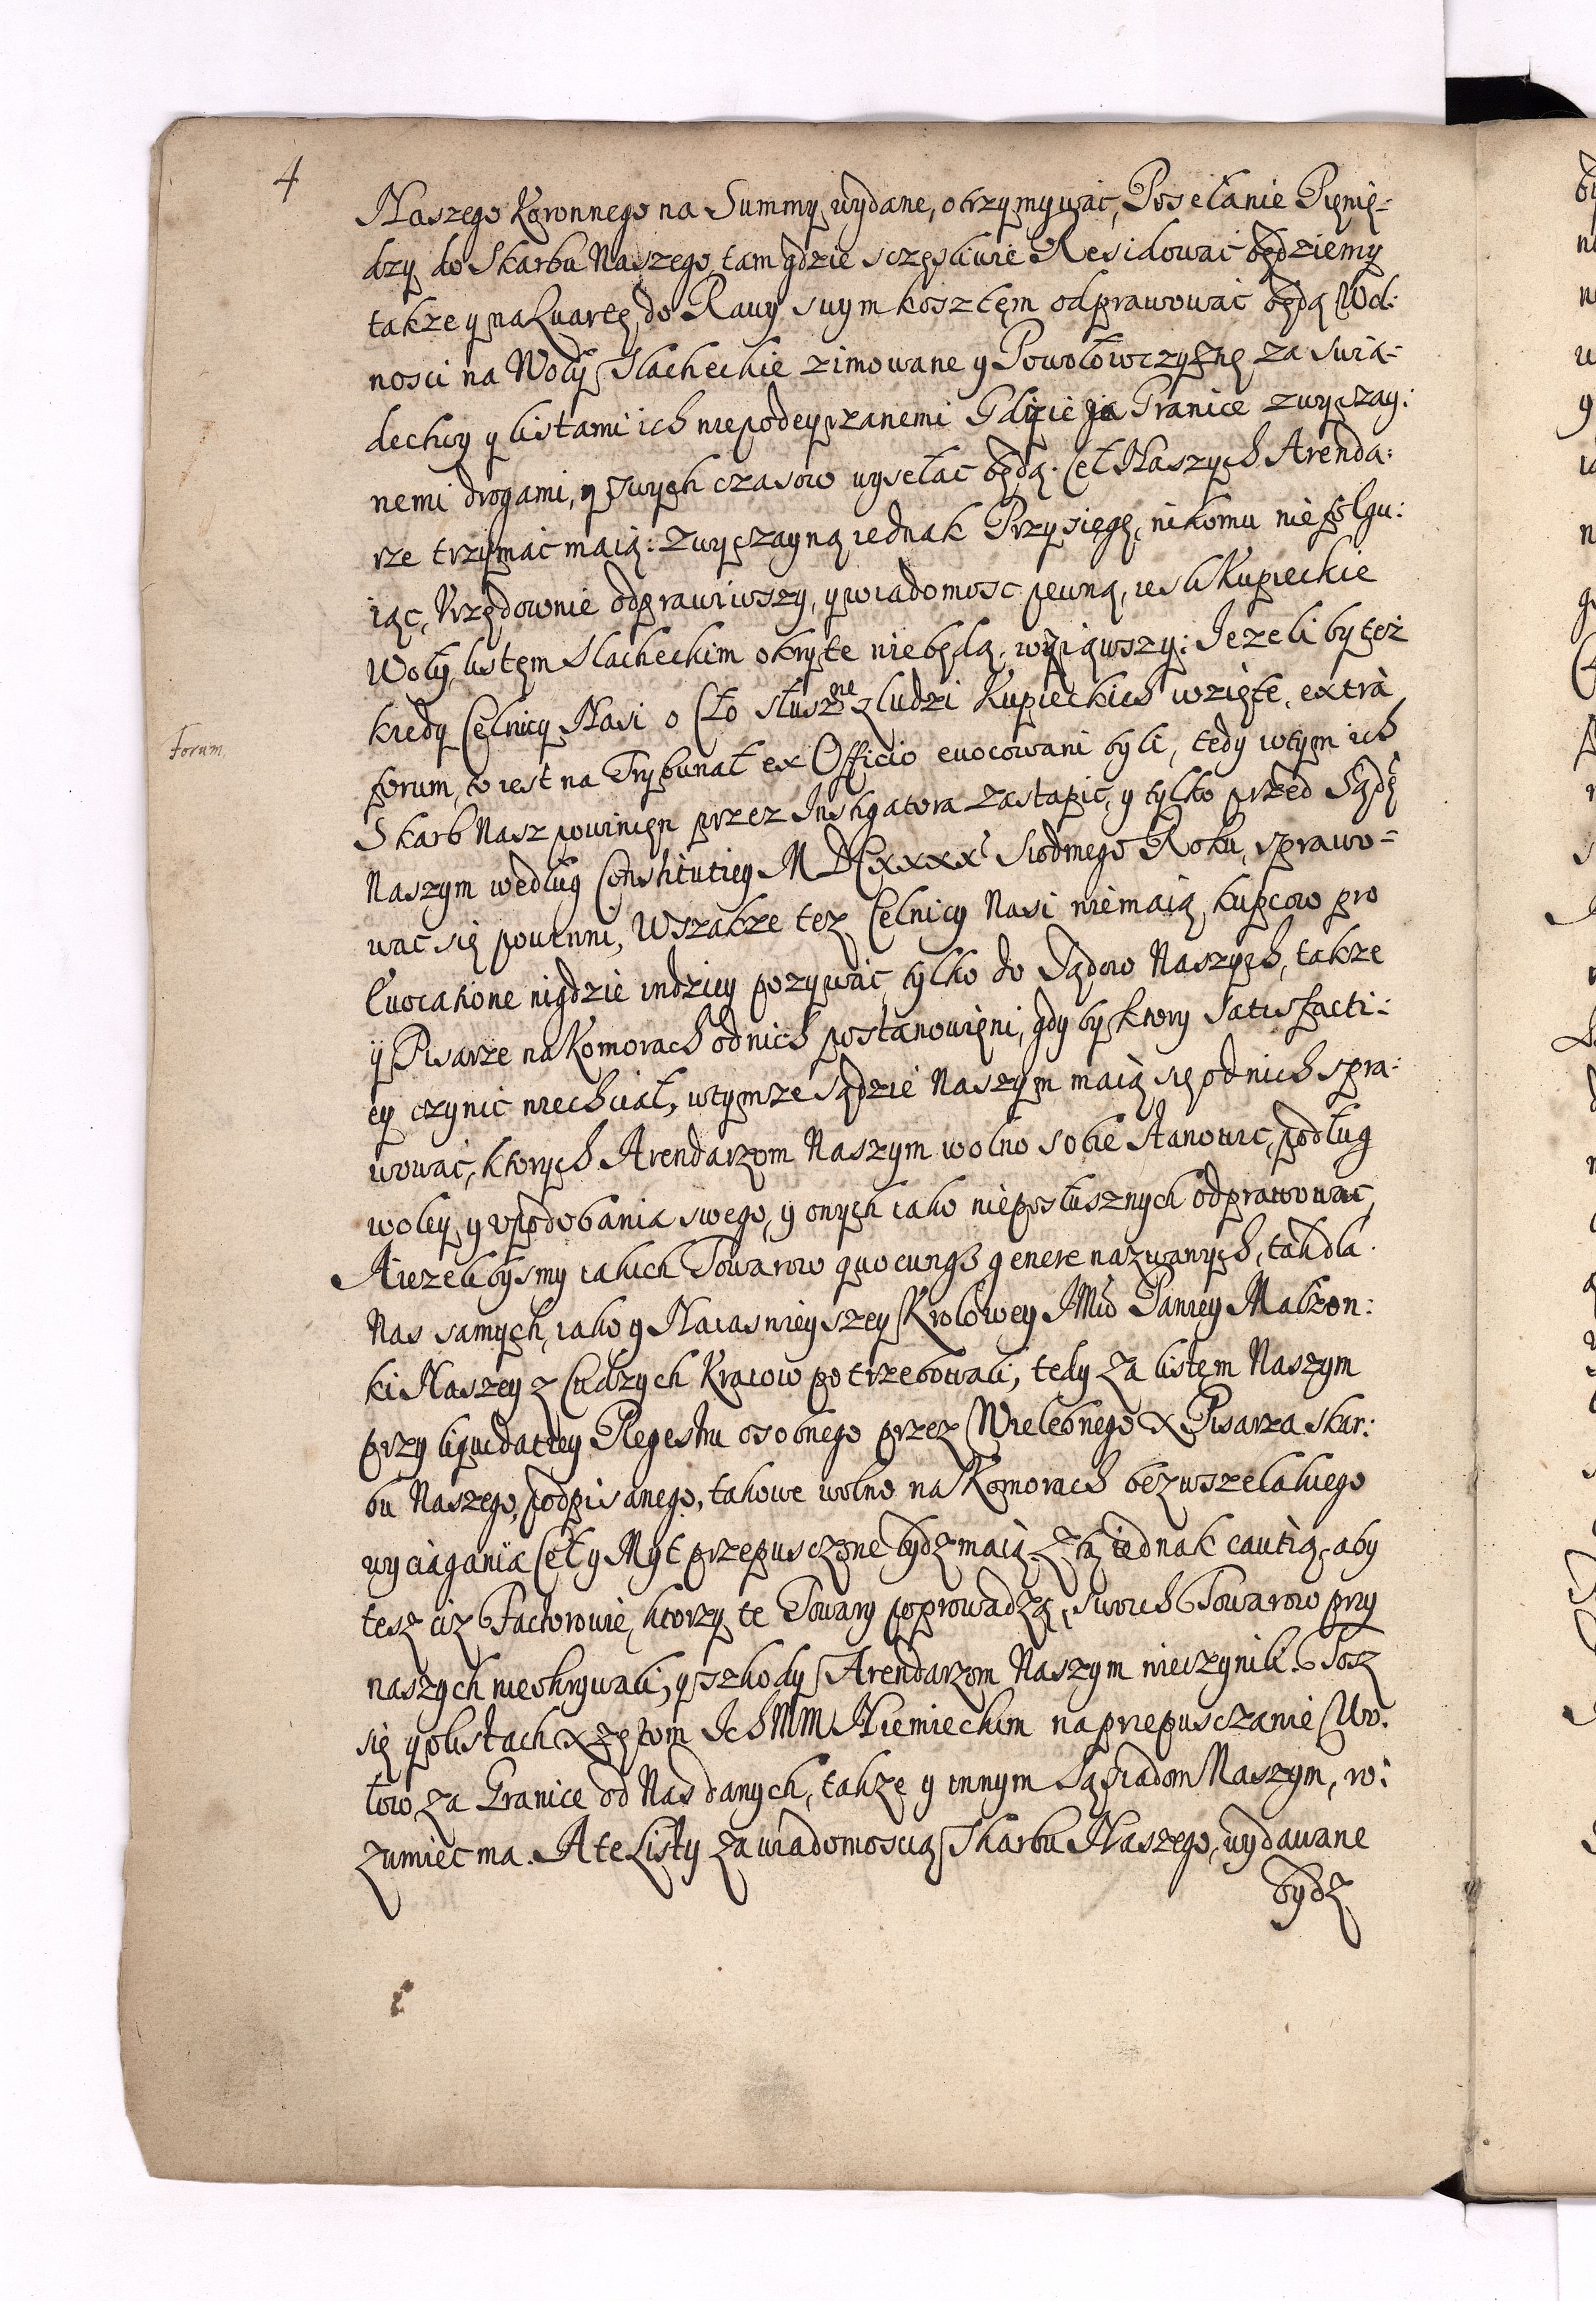 4
Naszego Koronnego na Summy wydane, otrzymywać, Posełanie Pienię-
dzy do Skarbu Naszego, tam gdzie sczęsliwie Residować będziemy
takze y na Quartę do Rawy swym kosztęm odprawować będą Wol:
nosci na Woły Slacheckie zimowane y Powołowczyznę za swia-
dechwy y listami ich niepodeyrzanemi Gdzie Granice zwyczay:
nemi drogami, y swych czasow wysełac będą. Cel Naszych Arenda:
rze trzymac maią: zwyczayną iednak Przysięgę, nikomu nie folgu:
iąc, Urzędownie odprawiwszy, y wiadomosc pewną, iesli Kupieckie
Woły, listęm Slacheckim okryte niebędą, wyiąwszy: Iezeli by też
kiedy Celnicy Nasi o Cło słuszne z ludzi Kupieckich wzięte, extra
Forum
forum, to iest na Trybunał ex Officio evocowani byli, tedy wtym ich
Skarb Nasz powinien przez Instigatora zastąpić, y tylko przed Sądę
Naszym według Constitutiey M DCxxxx Siodmego Roku, sprawo-
wac się powinni, Wszakze tez Celnicy Nasi niemaią kupcow pro
Evocatione nigdzie indziey pozywać, tylko do Sądow Naszych, takze
ÿ Pisarze na Komorach od nich postanowięni, gdy by ktory satisfacti:
ey czynic niechciał, wtymze sądzie Naszym maią się od nich spra:
wować, ktorych Arendarzom Naszym wolno sobie stanowic, podług
woley y upodobania swego, y onych iako nieposłusznych odprawowac,
A iezelibysmy iakich Towarow quocunq3 genere nazwanych, tak dla
Nas samych, iako y Naiasnieyszey Krolowey IMci Paniey Małzon:
ki Naszey z Cudzych Kraiow potrzebowali, tedy za listem Naszym
przy liquidatiey Regestru osobnego przez Wielebnego X Pisarza Skar:
bu Naszego, podpisanego, takowe wolno na Komorach bez wszelakiego
wyciągania Ceł y Myt przepusczone bydz maią, z tą iednak cautią, aby
tesz ciz Factorowie, ktorzy te Towary poprowadzą, swoich Towarow przy
naszych nieokrywali, y szkody Arendarzom Naszym nieczynili. Tosz
się y o listach Xzęzom Ich MM Niemieckim na przepusczanie Wo:
łow za Granice od Nas danych, takze y innym Sąsiadom Naszym, ro:
zumiec ma. A te Listy za wiadomoscią Skarbu Naszego, wydawane
bydz